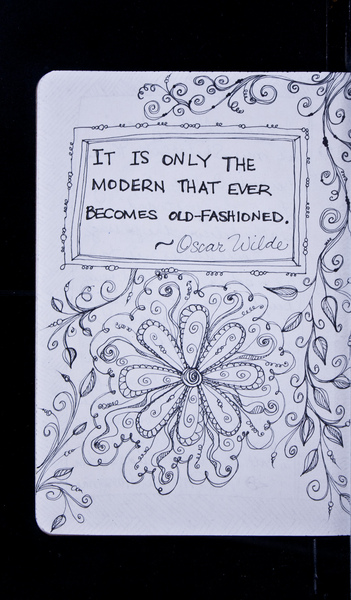 IT IS ONLY THE
MODERN THAT EVER
BECOMES OLD-FASHIONED.
~ Oscar Wilde